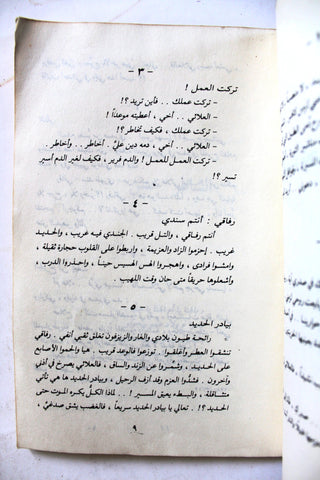 - ٣ -
تركت العمل !
- تركت عملك . . فأين تريد ؟!
- العلائي . . أخي ، أعطيته موعداً !
- تركت عملك ، فكيف تخاطر ؟!
- العلائي . . أخي ، دمه دين عليّ . أخاطر . . وأخاطر .
- تركت العمل للعمل ! والدم فرير ، فكيف لغير الدم أسير
تسير ؟!
- ٤ -
رفاقي : أنتم سندي
أنتم رفاقي ، والتل قريب . الجندي فيه غريب ، والحديد
غريب . إحزموا الزاد والعزيمة ، واربطوا على القلوب حجارة ثقيلة ،
وامشوا فرادى ، واهجروا الهس الهسيس حيناً ، واحذروا الدرب ،
وأشعلوها حريقاً متى حان وقت اللهيب .
- ٥ -
بيادر الحديد
رائحة طيون بلادي والغار والزيزفون تغلق ثقبي أنفي . رفاقي
تنشقوا العطر وأغلقوا . توزعوا فالوعد قريب . هيا واحموا الأصابع
على الحديد ، وشمّروا عن الزند والساق ، فالعلائي يصرخ في أذني
وأذنكم . فشدّوا العزم وقد أزف الرحيل ، وبيادر الحديد ها هي تأتي
متثاقلة ، والبطء يعيق المسير . . ! لماذا الكلّ يكره الموت حتى
الحديد ؟! . تعالي يا بيادر الحديد سريعاً ، فالغضب يشق صدغيّ ،
٩